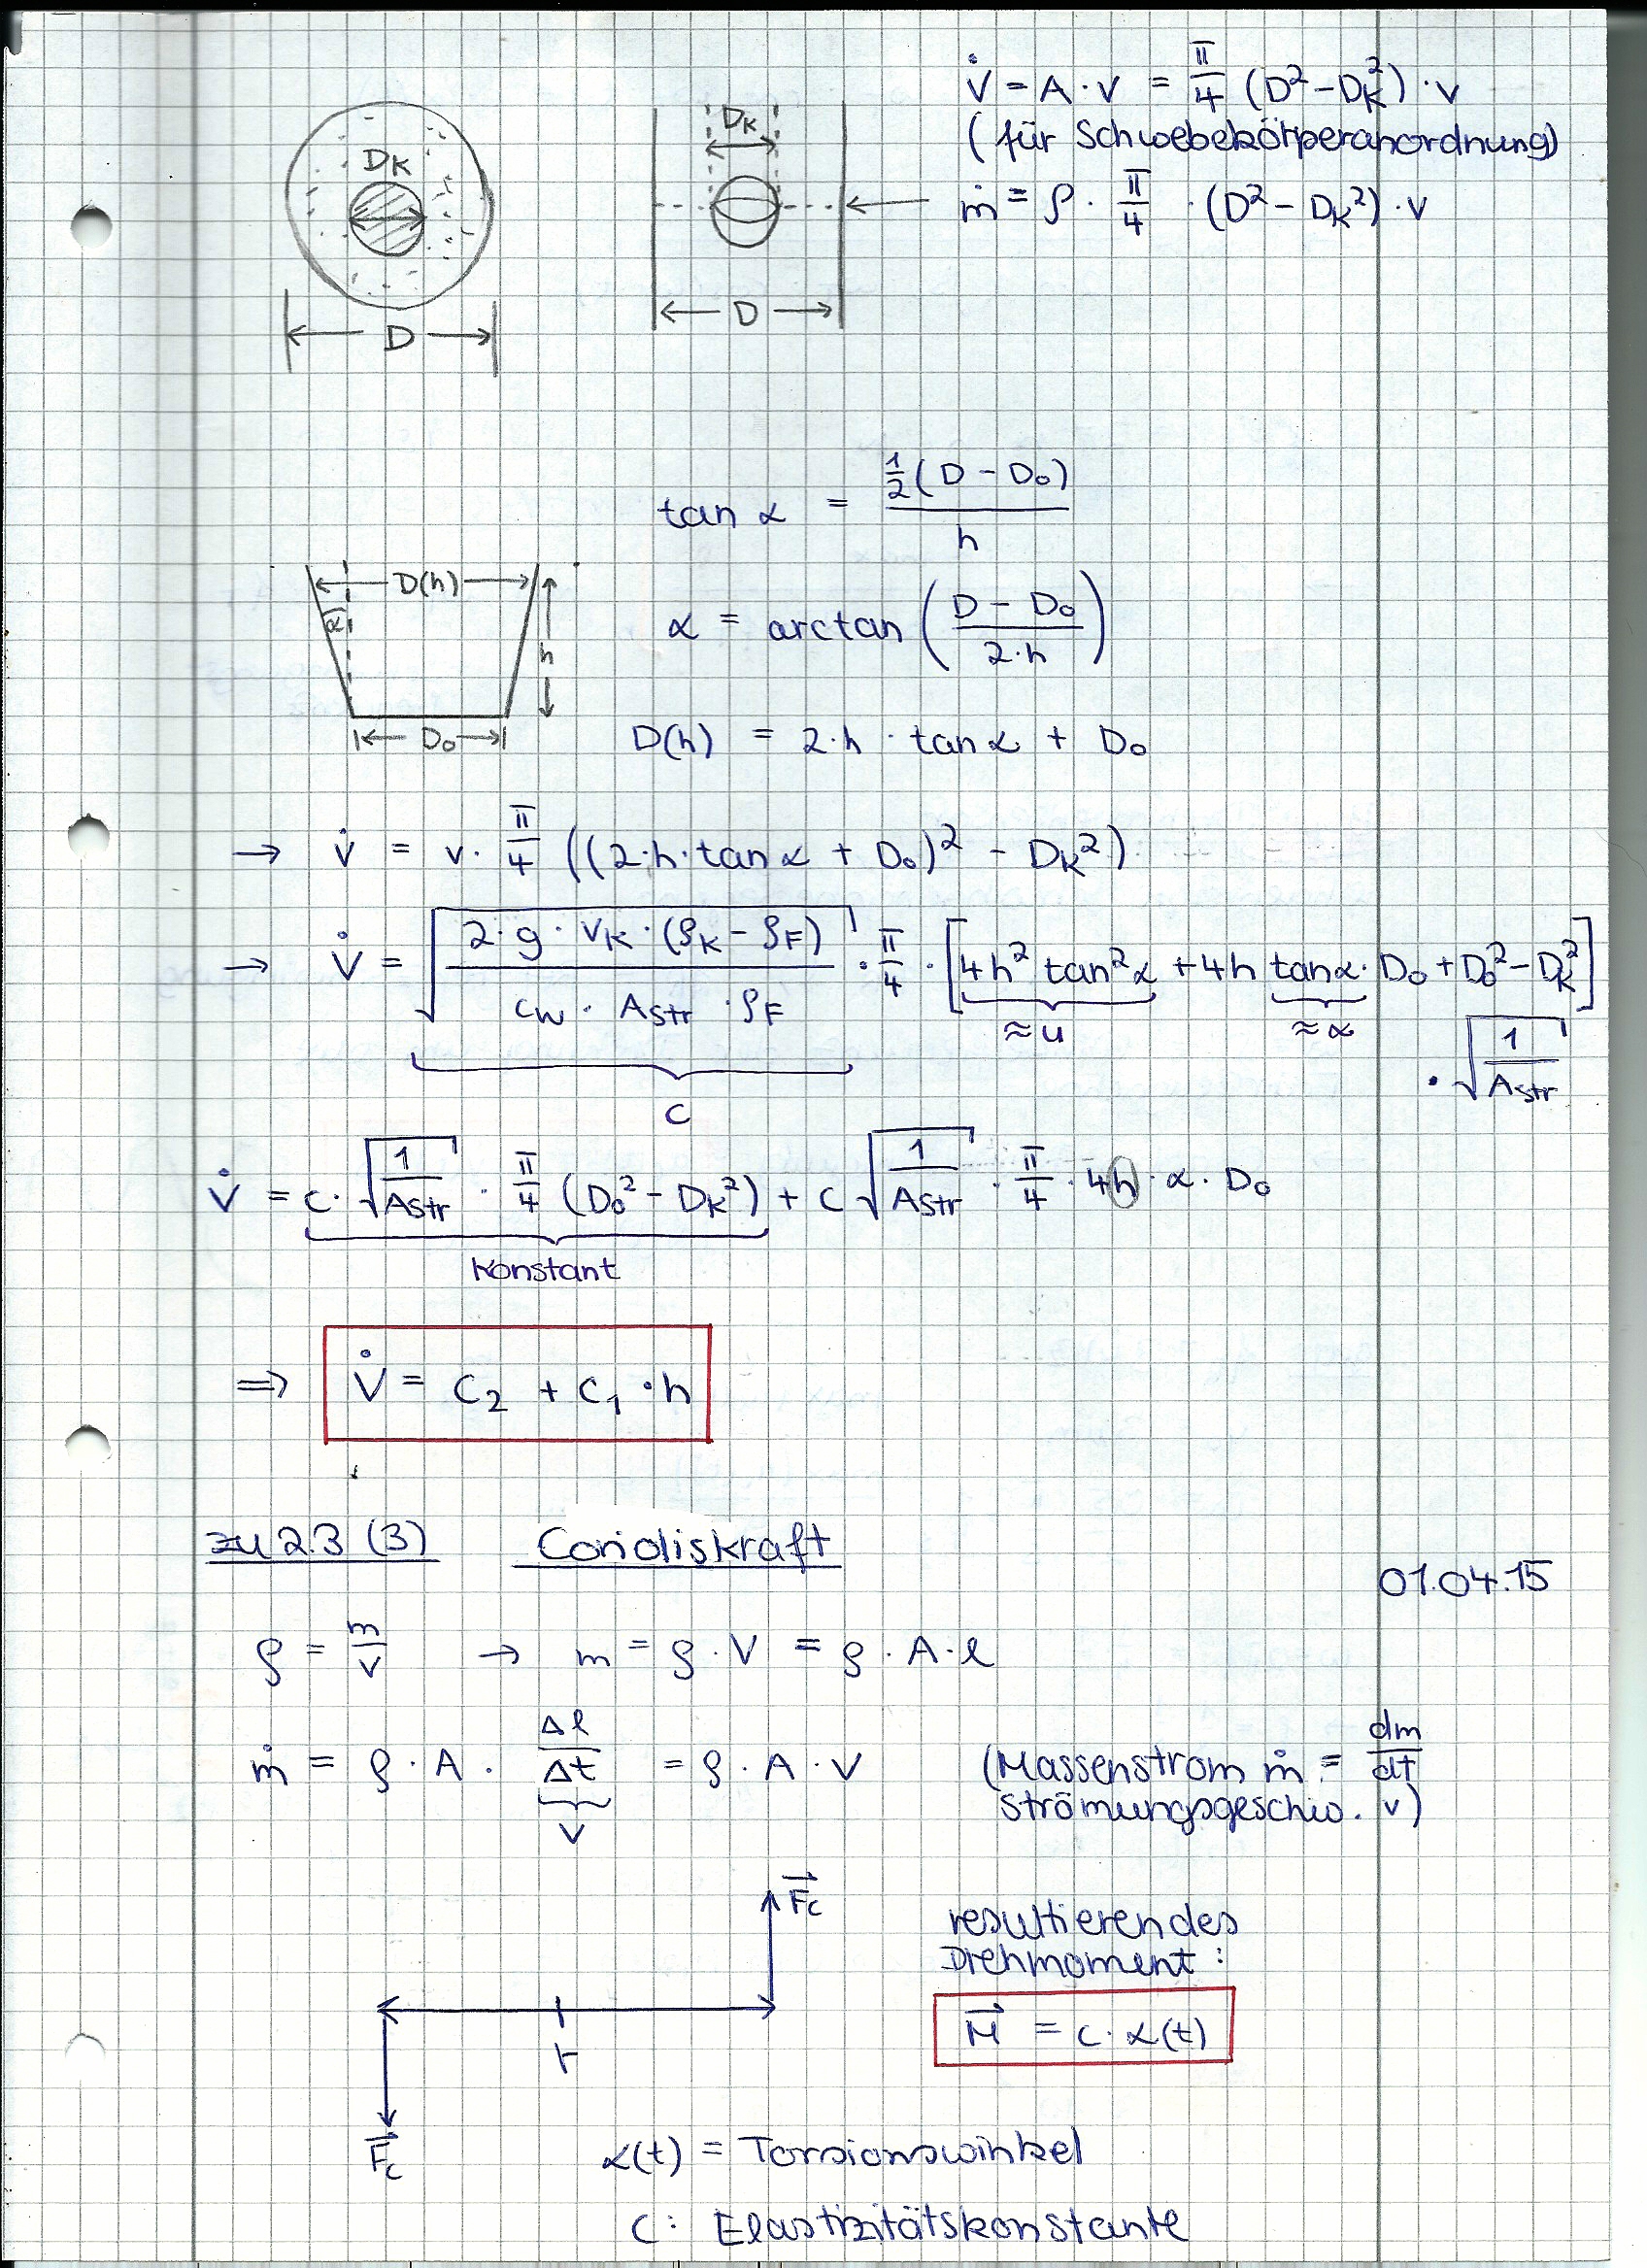 V̇ = A · v = π/4 (D² - D_K²) · v
(für Schwebekörperanordnung)
ṁ = ρ · π/4 · (D² - D_K²) · v
D_K
D
D_K
D
tan α = ½(D - D₀) / h
α = arctan ((D - D₀) / (2·h))
D(h) = 2·h · tan α + D₀
D(h)
α
h
D₀
→ V̇ = v · π/4 ((2·h·tan α + D₀)² - D_K²)
→ V̇ = √((2·g·V_K·(ρ_K - ρ_F)) / (c_w · A_Str · ρ_F)) · π/4 · [4h² tan²α + 4h tanα · D₀ + D₀² - D_K²]
≈u ≈α · √(1/A_Str)
C
V̇ = C · √(1/A_Str) · π/4 (D₀² - D_K²) + C √(1/A_Str) · π/4 · 4h · α · D₀
konstant
⇒ V̇ = C₂ + C₁ · h
zu 2.3 (3) Corioliskraft
01.04.15
ρ = m/V → m = ρ · V = ρ · A · l
ṁ = ρ · A · Δl/Δt = ρ · A · v (Massenstrom ṁ = dm/dt
v Strömungsgeschw. v)
F⃗_c
resultierendes
Drehmoment :
M⃗ = c · α(t)
r
F⃗_c
α(t) = Torsionswinkel
C : Elastizitätskonstante